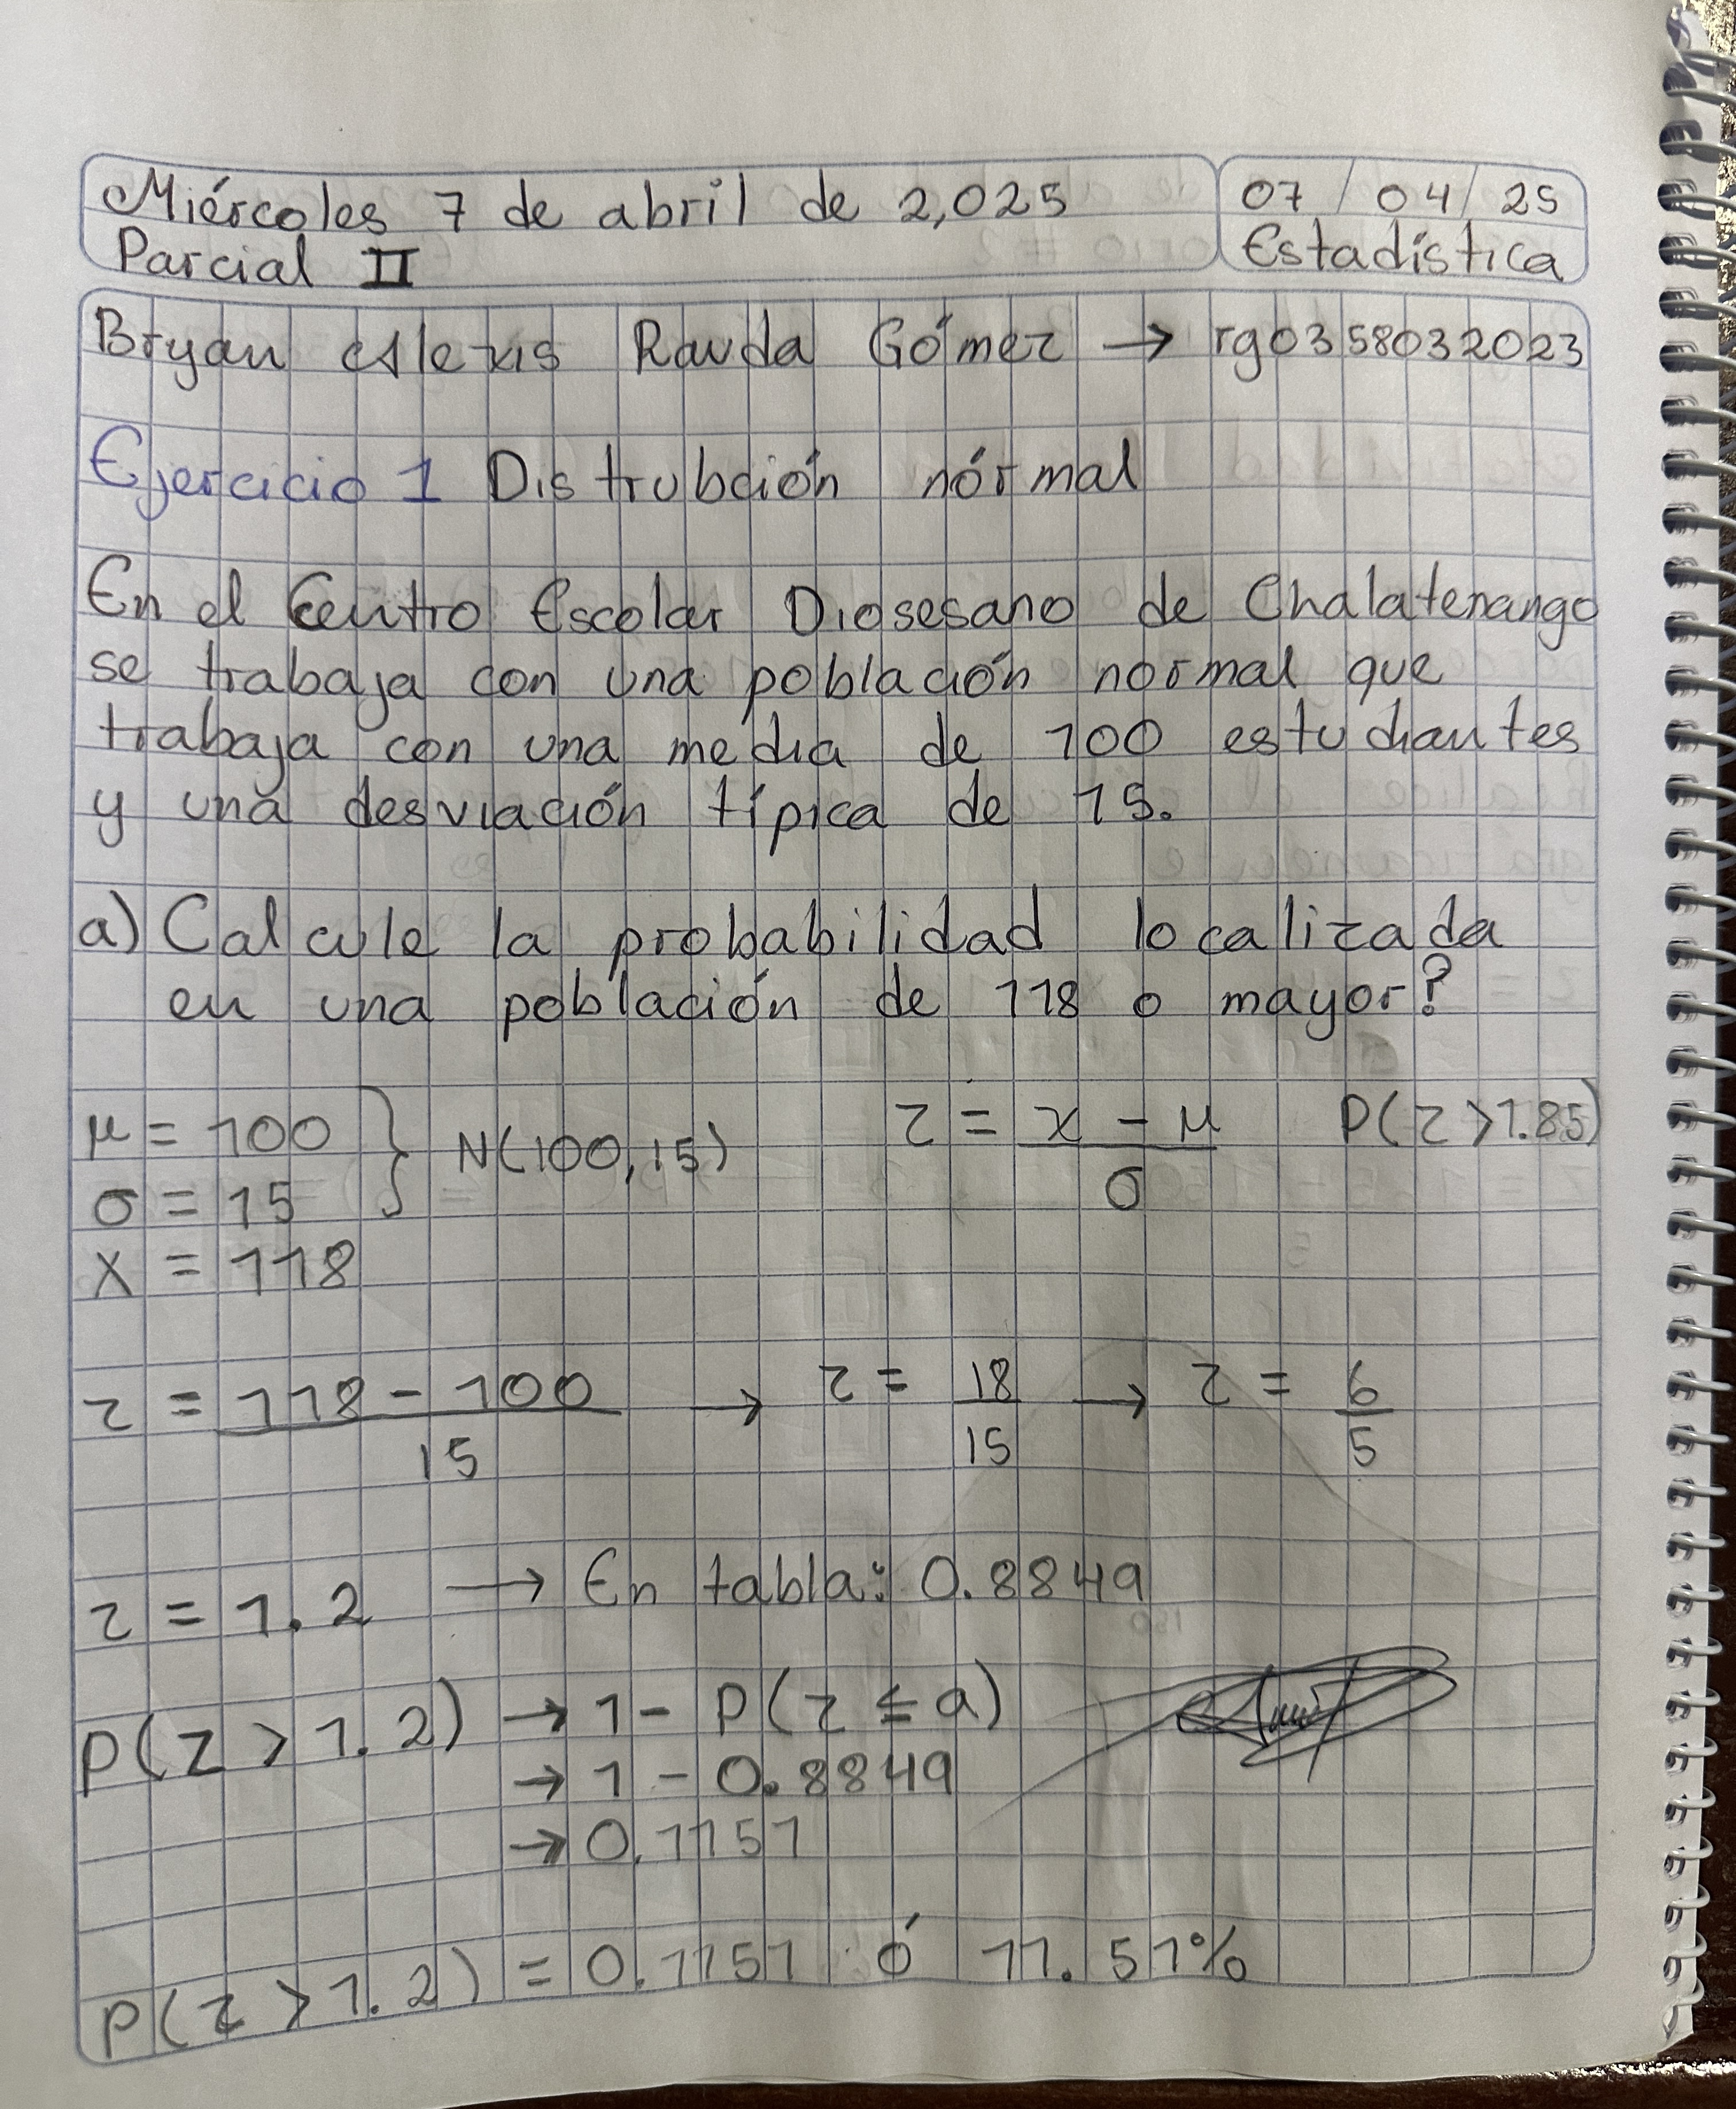 Miércoles 7 de abril de 2,025
Parcial II
07 / 04 / 25
Estadística
Bryan Alexis Rauda Gómez → rg0358032023
Ejercicio 1 Distrubción nórmal
En el Centro Escolar Diosesano de Chalatenango
se trabaja con una población normal que
trabaja con una media de 100 estudiantes
y una desviación típica de 15.
a) Calcule la probabilidad localizada
en una población de 118 o mayor?
μ = 100
σ = 15
} N(100,15)
x = 118
z = x - μ / σ
P(z > 1.85)
z = 118 - 100 / 15 → z = 18 / 15 → z = 6 / 5
z = 1.2 → En tabla: 0.8849
P(z > 1.2) → 1 - P(z ≤ a)
→ 1 - 0.8849
→ 0.1151
P(z > 1.2) = 0.1151 ó 11.51%